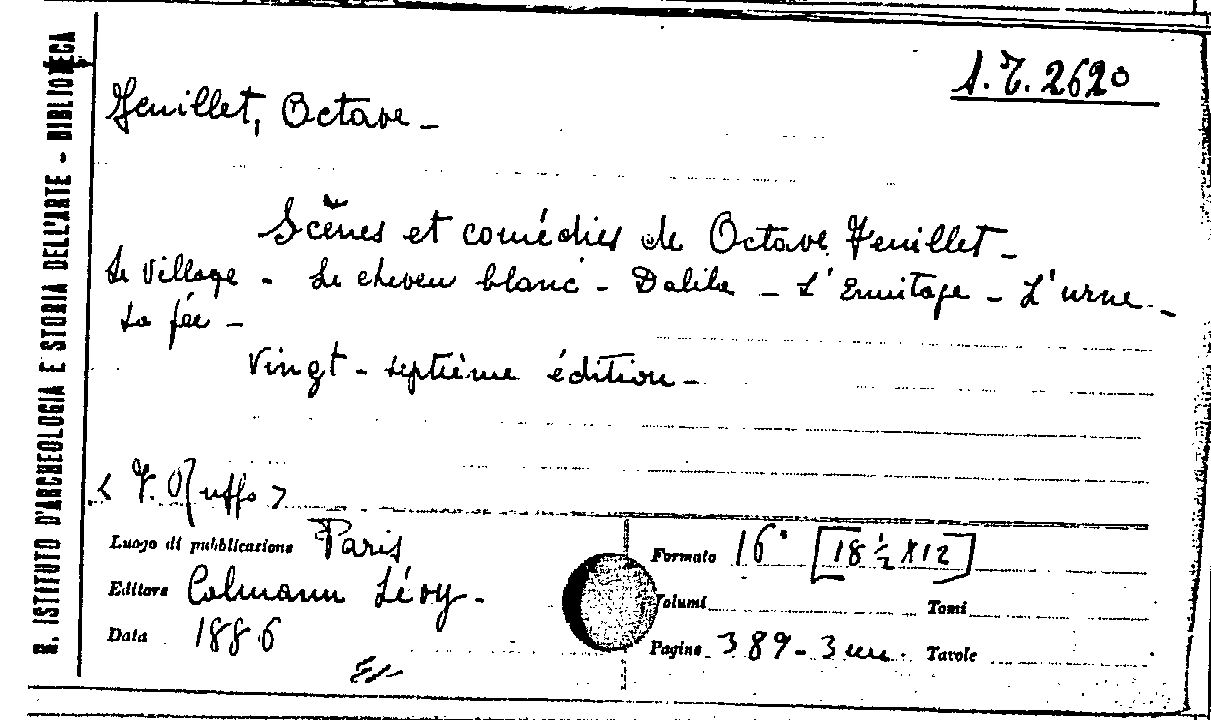 R. ISTITUTO D'ARCHEOLOGIA E STORIA DELL'ARTE - BIBLIOTECA
S.T. 2620
Feuillet, Octave -
Scènes et comédies de Octave Feuillet -
Le Village - Le cheveu blanc - Dalila - L'Ermitage - L'urne -
La fée -
Vingt-septième édition -
< F. Ruffo >
Luogo di pubblicazione Paris
Editore Calmann Lévy -
Data 1886
Formato 16° [18 ½ X12]
Volumi Tomi
Pagine 389-3 Tavole